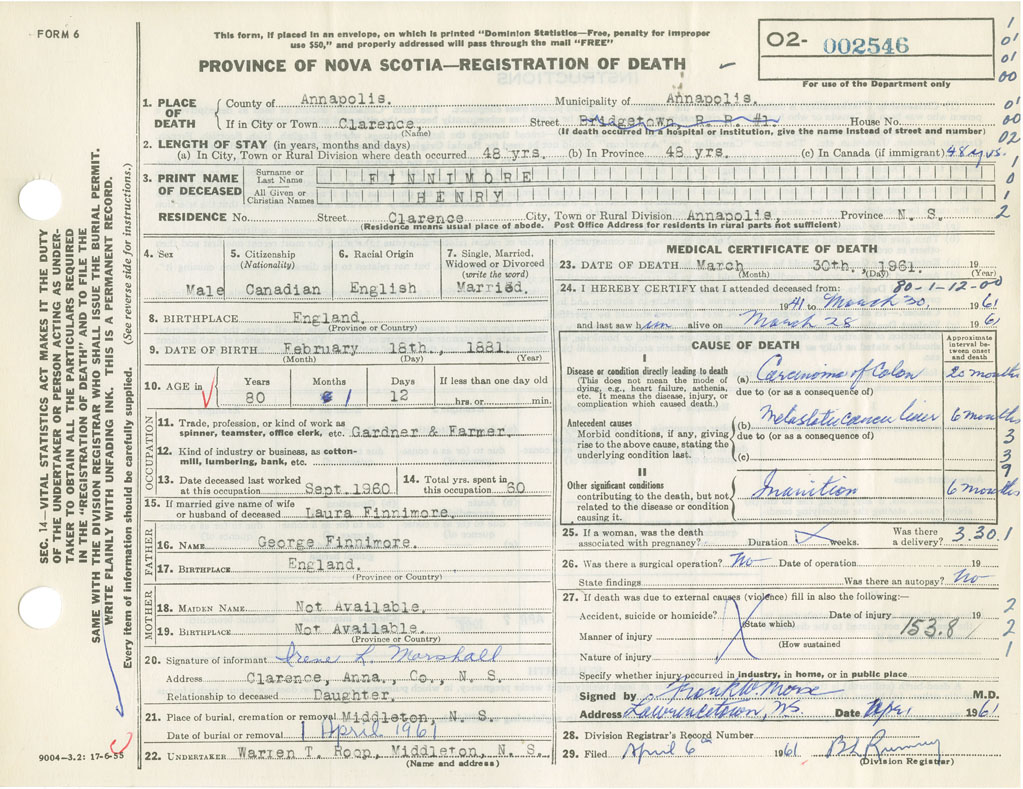 FORM 6
This form, if placed in an envelope, on which is printed "Dominion Statistics—Free, penalty for improper
use $50," and properly addressed will pass through the mail "FREE"
PROVINCE OF NOVA SCOTIA—REGISTRATION OF DEATH
02- 002546
For use of the Department only
1. PLACE OF DEATH
County of Annapolis. Municipality of Annapolis.
If in City or Town Clarence, Street Bridgetown, R. R. #1. House No.
(Name) (If death occurred in a hospital or institution, give the name instead of street and number)
2. LENGTH OF STAY (in years, months and days)
(a) In City, Town or Rural Division where death occurred 48 yrs. (b) In Province 48 yrs. (c) In Canada (if immigrant) 48 yrs.
3. PRINT NAME OF DECEASED
Surname or Last Name FINNIMORE
All Given or Christian Names HENRY
RESIDENCE No. Street Clarence City, Town or Rural Division Annapolis, Province N. S.
(Residence means usual place of abode. Post Office Address for residents in rural parts not sufficient)
4. Sex
Male
5. Citizenship
(Nationality)
Canadian
6. Racial Origin
English
7. Single, Married,
Widowed or Divorced
(write the word)
Married.
8. BIRTHPLACE England.
(Province or Country)
9. DATE OF BIRTH February 18th., 1881.
(Month) (Day) (Year)
10. AGE in
Years Months Days If less than one day old
80 1 12 hrs. or min.
OCCUPATION
11. Trade, profession, or kind of work as
spinner, teamster, office clerk, etc. Gardner & Farmer.
12. Kind of industry or business, as cotton-
mill, lumbering, bank, etc.
13. Date deceased last worked
at this occupation Sept. 1960
14. Total yrs. spent in
this occupation 60
15. If married give name of wife
or husband of deceased Laura Finnimore.
FATHER
16. NAME George Finnimore.
17. BIRTHPLACE England.
(Province or Country)
MOTHER
18. MAIDEN NAME Not Available.
19. BIRTHPLACE Not Available.
(Province or Country)
20. Signature of informant Irene L. Marshall
Address Clarence, Anna., Co., N. S.
Relationship to deceased Daughter.
21. Place of burial, cremation or removal Middleton, N. S.
Date of burial or removal 1 April 1961
22. UNDERTAKER Warren T. Roop, Middleton, N. S.
(Name and address)
MEDICAL CERTIFICATE OF DEATH
23. DATE OF DEATH March 30th., 1961. 19
(Month) (Day) (Year)
24. I HEREBY CERTIFY that I attended deceased from: 80-1-12-00
1941 to March 30, 1961
and last saw him alive on March 28 1961
CAUSE OF DEATH
Approximate
interval be-
tween onset
and death
I
Disease or condition directly leading to death
(This does not mean the mode of
dying, e.g., heart failure, asthenia,
etc. It means the disease, injury, or
complication which caused death.)
(a) Carcinoma of Colon 20 months
due to (or as a consequence of)
Antecedent causes
Morbid conditions, if any, giving
rise to the above cause, stating the
underlying condition last.
(b) Metastatic cancer liver 6 months
due to (or as a consequence of)
(c)
II
Other significant conditions
contributing to the death, but not
related to the disease or condition
causing it.
Inanition 6 months
25. If a woman, was the death
associated with pregnancy? Duration weeks. Was there
a delivery? 3.30.1
26. Was there a surgical operation? No Date of operation 19
State findings Was there an autopsy? No
27. If death was due to external causes (violence) fill in also the following:—
Accident, suicide or homicide? Date of injury 19
(State which) 153.8
Manner of injury
(How sustained
Nature of injury
Specify whether injury occurred in industry, in home, or in public place
Signed by Frank W. Morse M.D.
Address Lawrencetown, NS. Date Apr 1 1961
28. Division Registrar's Record Number
29. Filed April 6th 1961
(Division Registrar)
SEC. 14—VITAL STATISTICS ACT MAKES IT THE DUTY
OF THE UNDERTAKER OR PERSON ACTING AS UNDER-
TAKER TO OBTAIN ALL THE PARTICULARS REQUIRED
IN THE "REGISTRATION OF DEATH" AND TO FILE THE
SAME WITH THE DIVISION REGISTRAR WHO SHALL ISSUE THE BURIAL PERMIT.
WRITE PLAINLY WITH UNFADING INK. THIS IS A PERMANENT RECORD.
Every item of information should be carefully supplied. (See reverse side for instructions.)
9004—3.2: 17-6-55
1
01
01
00
01
00
02
1
0
1
2
3
3
9
2
2
1